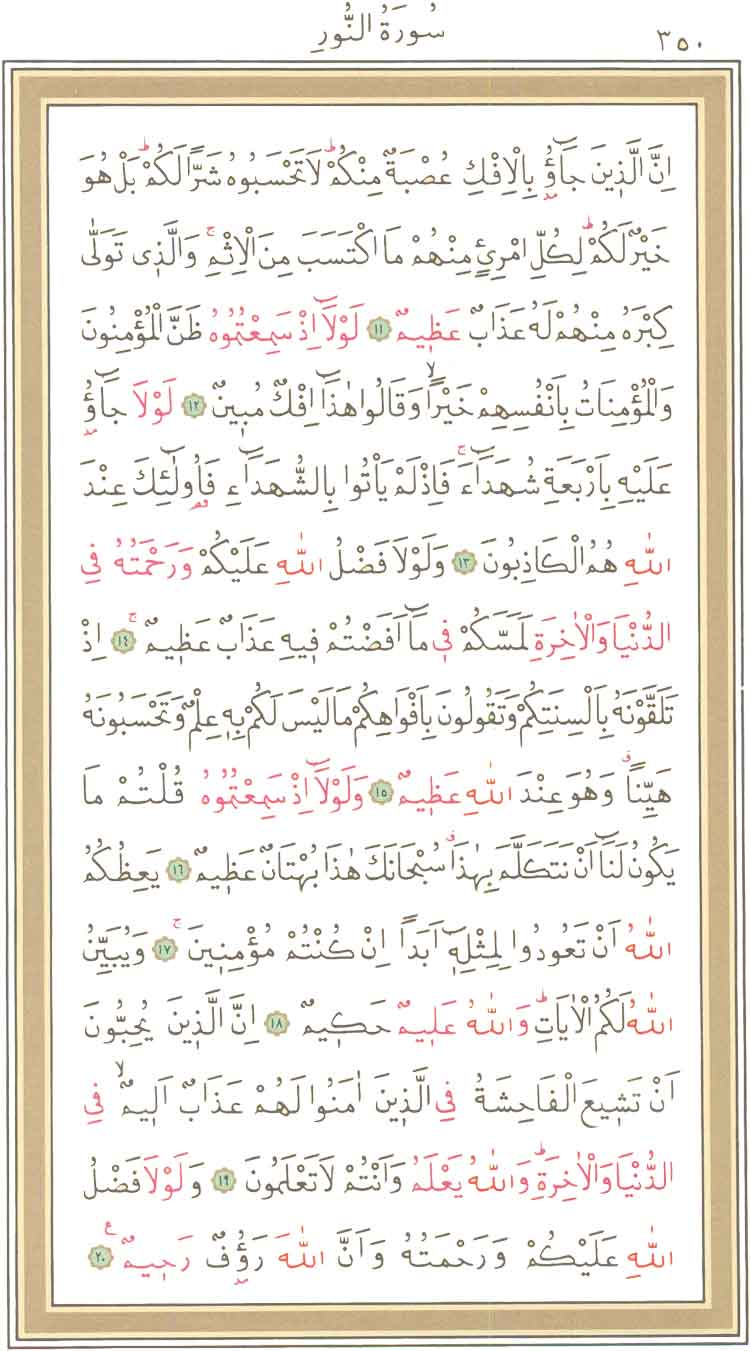 سُورَةُ النُّورِ
٣٥٠
اِنَّ الَّذٖينَ جَٓاؤُ بِالْاِفْكِ عُصْبَةٌ مِنْكُمْؕ لَا تَحْسَبُوهُ شَرًّا لَكُمْؕ بَلْ هُوَ
خَيْرٌ لَكُمْؕ لِكُلِّ امْرِئٍ مِنْهُمْ مَا اكْتَسَبَ مِنَ الْاِثْمِۚ وَالَّذٖى تَوَلّٰى
كِبْرَهُ مِنْهُمْ لَهُ عَذَابٌ عَظٖيمٌ ١١ لَوْلَٓا اِذْ سَمِعْتُمُوهُ ظَنَّ الْمُؤْمِنُونَ
وَالْمُؤْمِنَاتُ بِاَنْفُسِهِمْ خَيْرًاۙ وَقَالُوا هٰذَٓا اِفْكٌ مُبٖينٌ ١٢ لَوْلَا جَٓاؤُ
عَلَيْهِ بِاَرْبَعَةِ شُهَدَٓاءَۚ فَاِذْ لَمْ يَاْتُوا بِالشُّهَدَٓاءِ فَاُولٰٓئِكَ عِنْدَ
اللّٰهِ هُمُ الْكَاذِبُونَ ١٣ وَلَوْلَا فَضْلُ اللّٰهِ عَلَيْكُمْ وَرَحْمَتُهُ فِى
الدُّنْيَا وَالْاٰخِرَةِ لَمَسَّكُمْ فٖى مَٓا اَفَضْتُمْ فٖيهِ عَذَابٌ عَظٖيمٌۚ ١٤ اِذْ
تَلَقَّوْنَهُ بِاَلْسِنَتِكُمْ وَتَقُولُونَ بِاَفْوَاهِكُمْ مَا لَيْسَ لَكُمْ بِهٖ عِلْمٌ وَتَحْسَبُونَهُ
هَيِّنًاۗ وَهُوَ عِنْدَ اللّٰهِ عَظٖيمٌ ١٥ وَلَوْلَٓا اِذْ سَمِعْتُمُوهُ قُلْتُمْ مَا
يَكُونُ لَنَٓا اَنْ نَتَكَلَّمَ بِهٰذَاۗ سُبْحَانَكَ هٰذَا بُهْتَانٌ عَظٖيمٌ ١٦ يَعِظُكُمُ
اللّٰهُ اَنْ تَعُودُوا لِمِثْلِهٖٓ اَبَدًا اِنْ كُنْتُمْ مُؤْمِنٖينَۚ ١٧ وَيُبَيِّنُ
اللّٰهُ لَكُمُ الْاٰيَاتِؕ وَاللّٰهُ عَلٖيمٌ حَكٖيمٌ ١٨ اِنَّ الَّذٖينَ يُحِبُّونَ
اَنْ تَشٖيعَ الْفَاحِشَةُ فِى الَّذٖينَ اٰمَنُوا لَهُمْ عَذَابٌ اَلٖيمٌۙ فِى
الدُّنْيَا وَالْاٰخِرَةِؕ وَاللّٰهُ يَعْلَمُ وَاَنْتُمْ لَا تَعْلَمُونَ ١٩ وَلَوْلَا فَضْلُ
اللّٰهِ عَلَيْكُمْ وَرَحْمَتُهُ وَاَنَّ اللّٰهَ رَؤُفٌ رَحٖيمٌ ع ٢٠